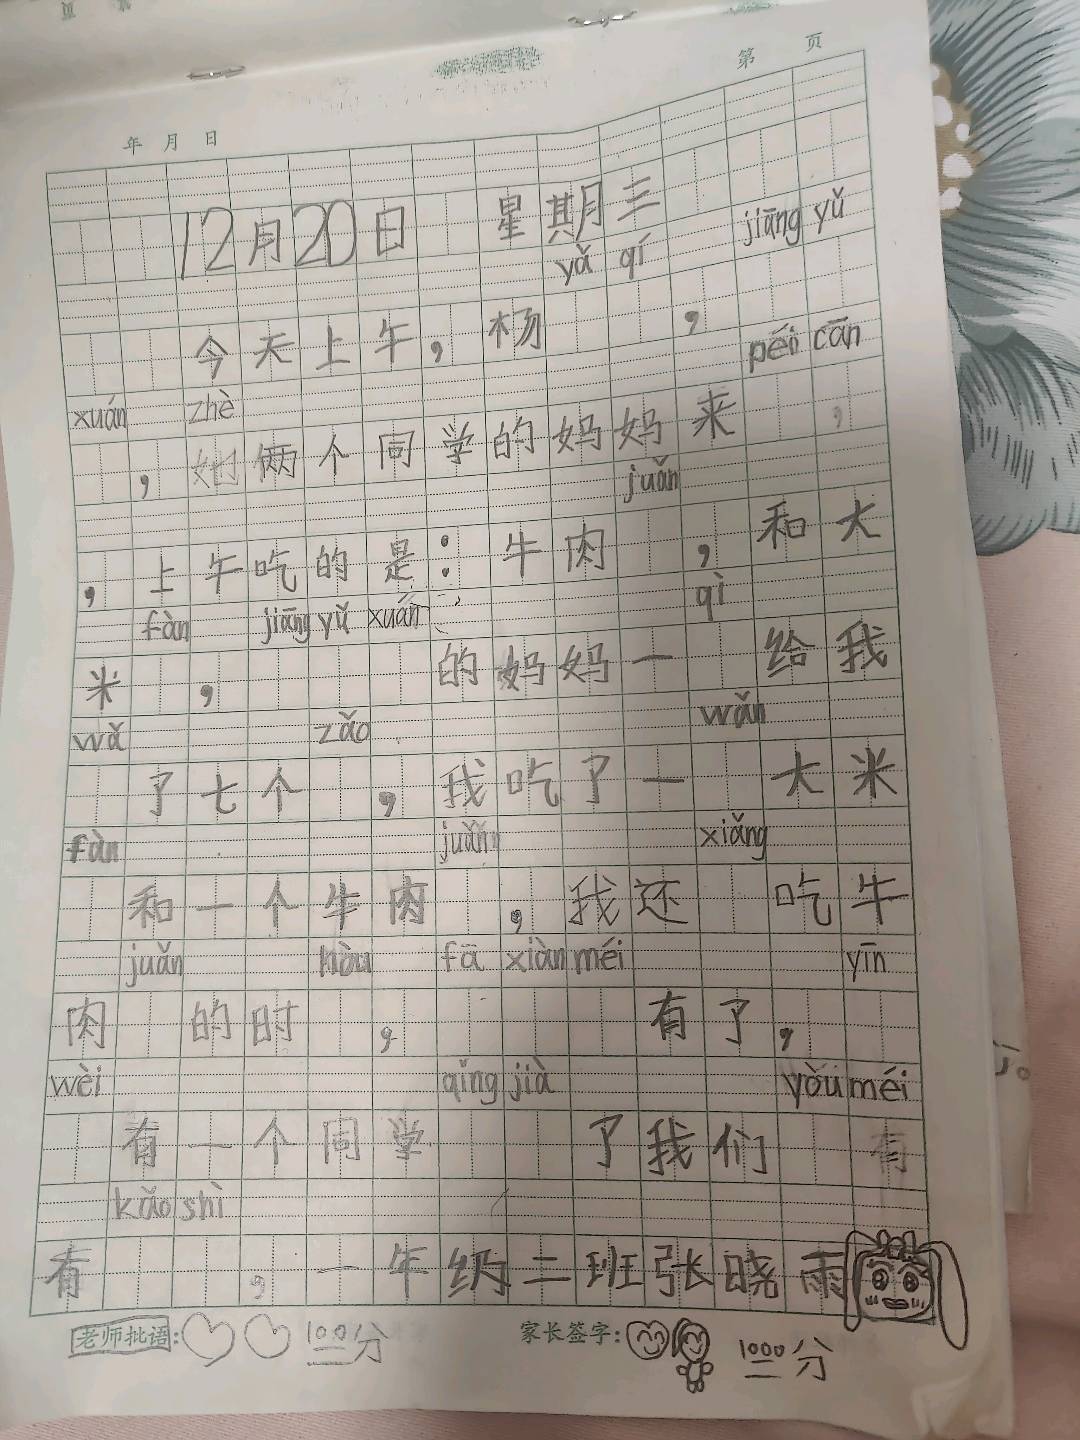 第 页
年 月 日
12月20日 星期三
yǎ qí jiāng yǔ
今天上午，杨 ，
xuán zhè péi cān
，她俩个同学的妈妈来 ，
juǎn
，上午吃的是：牛肉 ，和大
fàn jiāng yǔ xuán qì
米 ， 的妈妈一 给我
wǎ zǎo wǎn
了七个 ，我吃了一 大米
fàn juǎn xiǎng
和一个牛肉 ，我还 吃牛
juǎn hòu fā xiàn méi yīn
肉 的时 ， 有了，
wèi qǐng jià yòu méi
有一个同学 了我们 有
kǎo shì
有 ，一年级二班张晓雨
老师批语： 100分 家长签字： 1000分